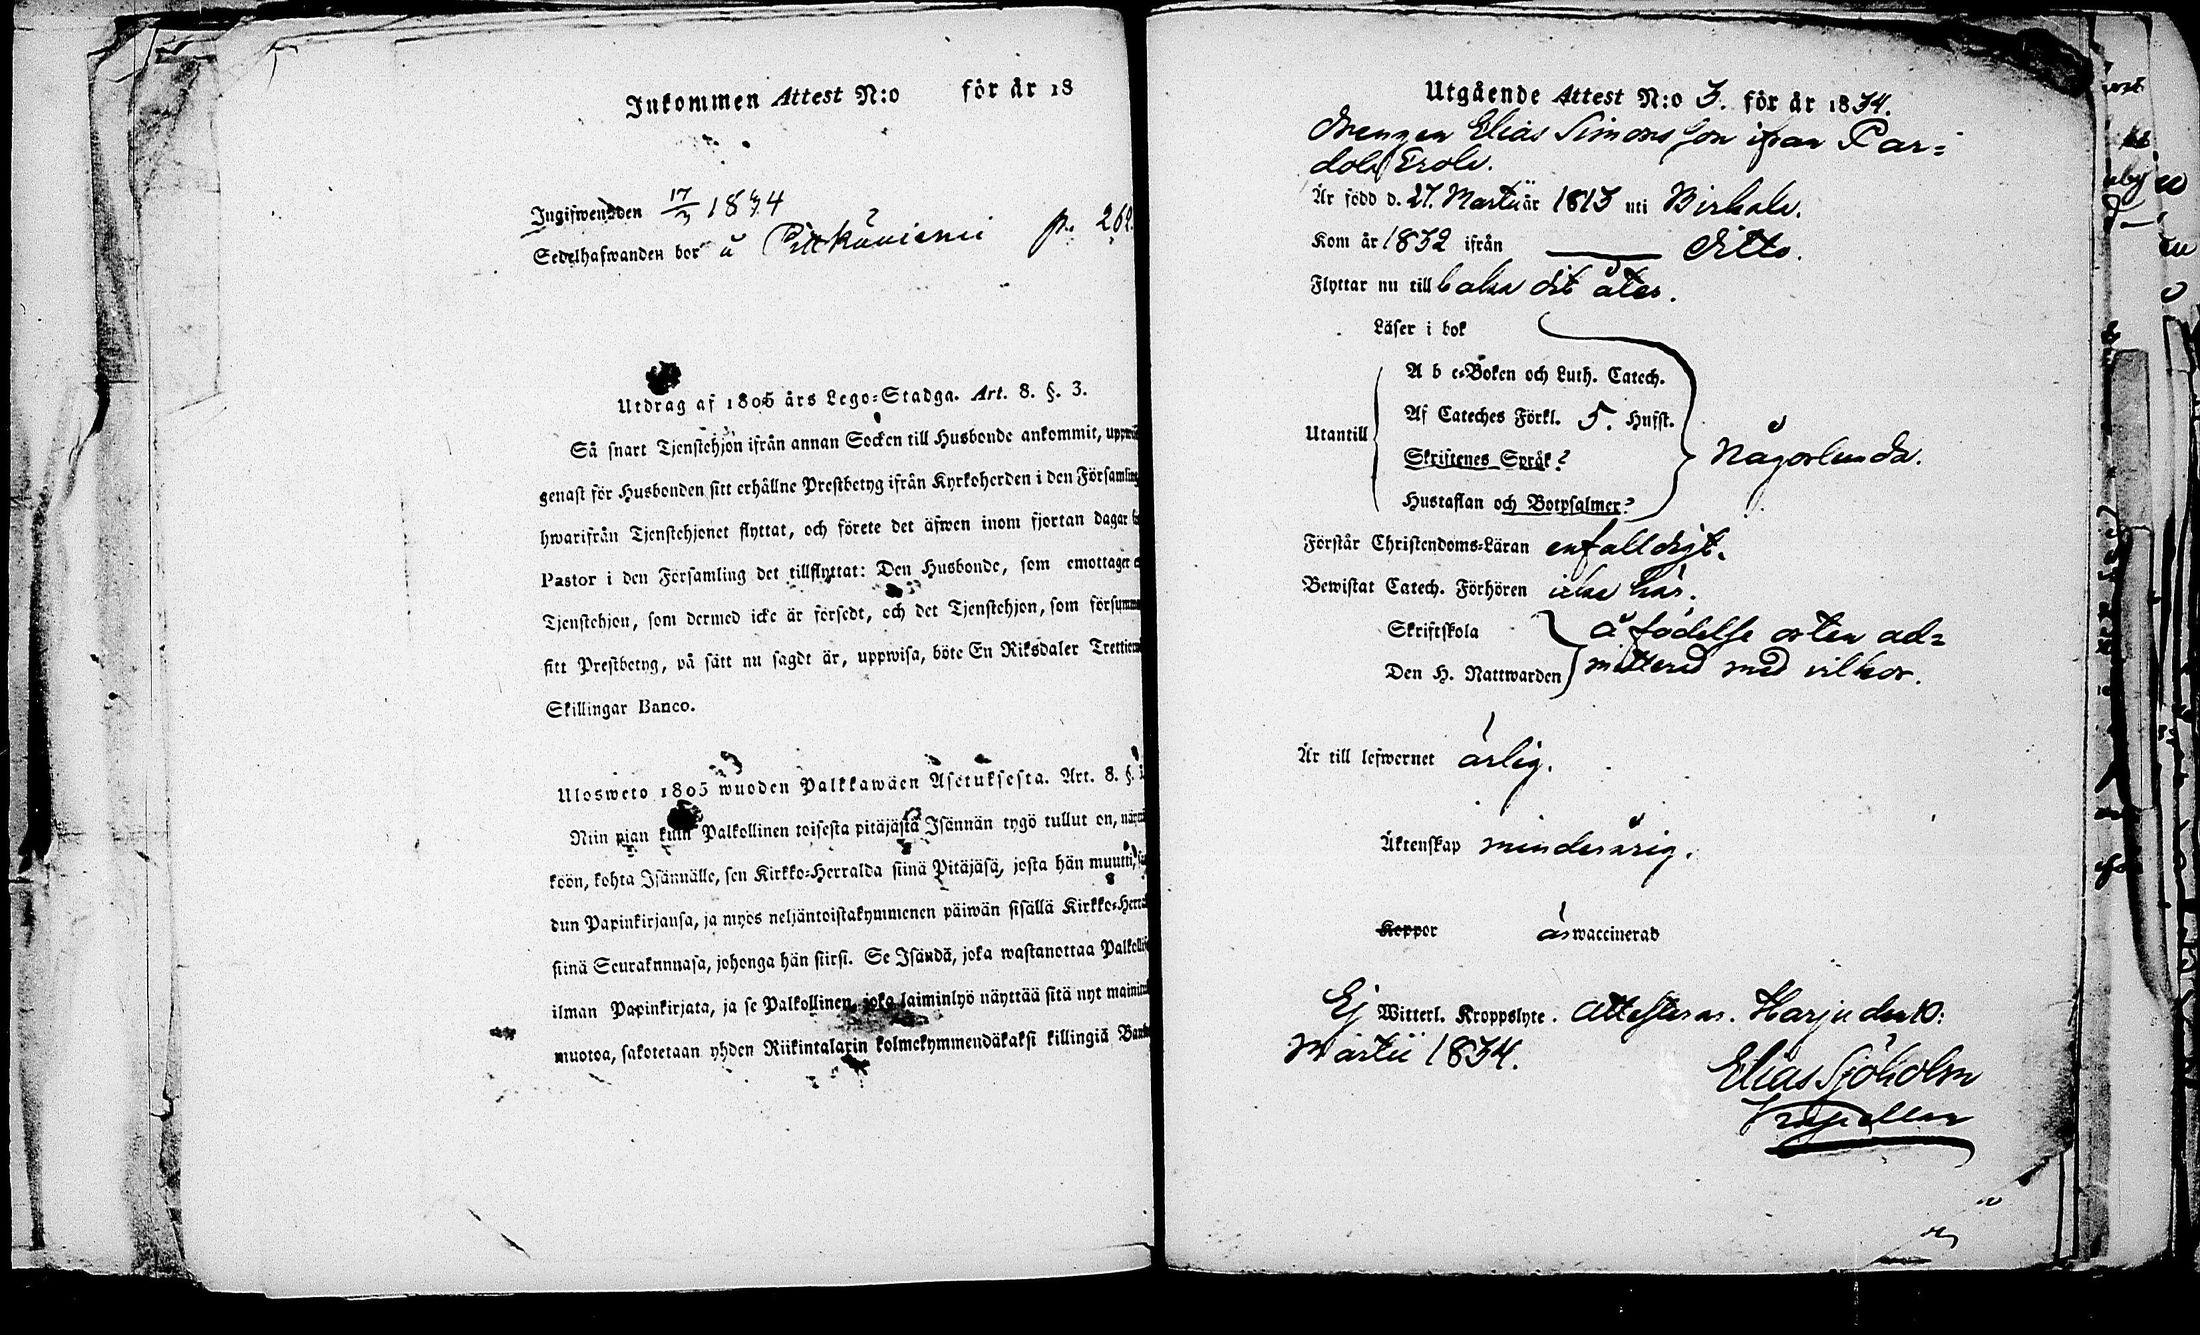 Inkommen Attest N:o för år 18
Ingifwen den 17/3 1834
Sedelhafwanden bor å Pitkäniemi p. 262.
Utdrag af 1805 års Lego=Stadga. Art. 8. §. 3.
Så snart Tjenstehjon ifrån annan Socken till Husbonde ankommit,
genast för Husbonden sitt erhållne Prestbetyg ifrån Kyrkoherden i den Församling
hwarifrån Tjenstehjonet flyttat, och förete det äfwen inom fjortan dagar
Pastor i den Församling det tillflyttat: Den Husbonde, som emottager
Tjenstehjon, som dermed icke är försedt, och det Tjenstehjon, som försumm
sitt Prestbetyg, på sätt nu sagdt är, uppwisa, böte En Riksdaler
Skillingar Banco.
Ulosweto 1805 wuoden Palkkawäen Asetuksesta. Art. 8. §.
Niin pian kuin Palkollinen toisesta pitäjästä Isännän tygö tullut on,
köön, kohta Isännälle, sen Kirkko=Herralda siinä Pitäjäsä, josta hän muutti,
dun Papinkirjansa, ja myös neljäntoistakymmenen päiwän sisällä Kirkko=Herra
siinä Seurakunnasa, johonga hän siirsi. Se Isändä, joka wastanottaa
ilman Papinkirjata, ja se Palkollinen, joka laiminlyö näyttää sitä nyt
muotoa, sakotetaan yhden Riikintalarin kolmekymmendäkaksi killingiä
Utgående Attest N:o 3. för år 1834.
Drengen Elias Simonsson ifrån Par=
dola Erola.
Är född d. 27. Martii år 1813 uti Birkala.
Kom år 1832 ifrån ditto.
Flyttar nu till baka dit åter.
Läser i bok
A b c=Boken och Luth. Catech.
Af Cateches Förkl. 5. Hufst.
Utantill Någorlunda.
Skriftenes Språk?
Hustaflan och Botpsalmer?
Förstår Christendoms=Läran enfalldigt.
Bewistat Catech. Förhören icke här.
Skriftskola å födelse orten ad=
Den H. Nattwarden mitterad med vilkor.
Är till lefwernet ärlig.
Äktenskap minderårig.
Koppor är waccinerad
Ej Witterl. Kroppslyte. Attesteras. Harju den 10:
Martii 1834.
Elias Sjöholm